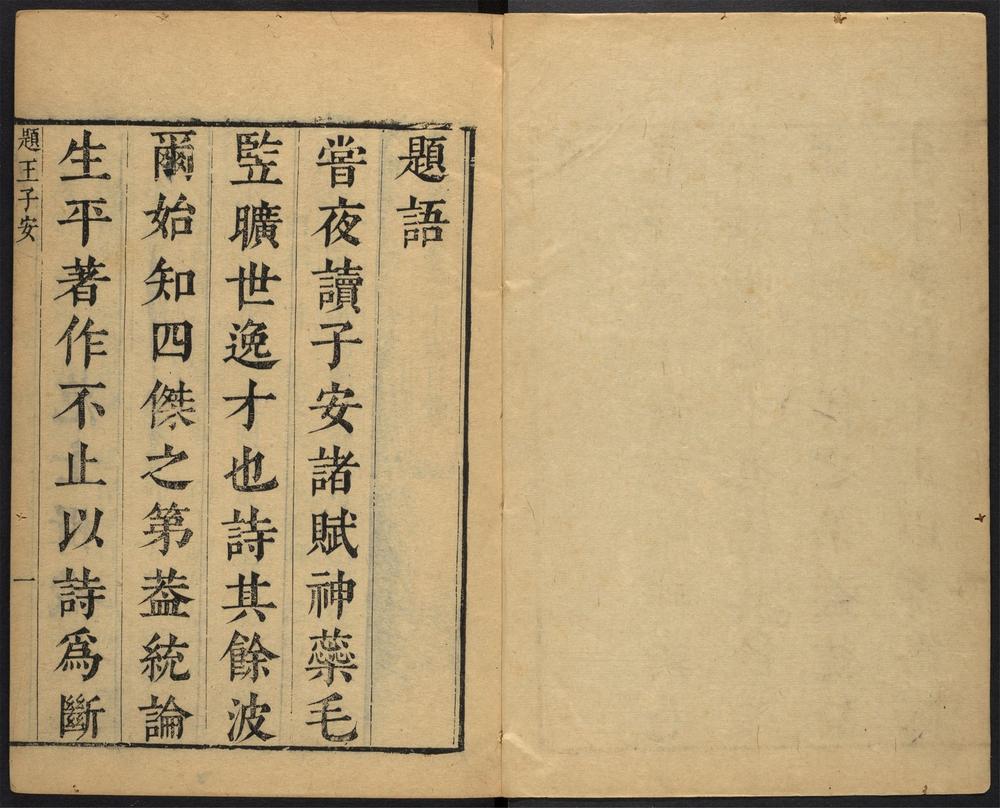 題語
甞夜讀子安諸賦神蘂毛
竪曠世逸才也詩其餘波
爾始知四傑之第葢統論
生平著作不止以詩爲斷
題王子安
一